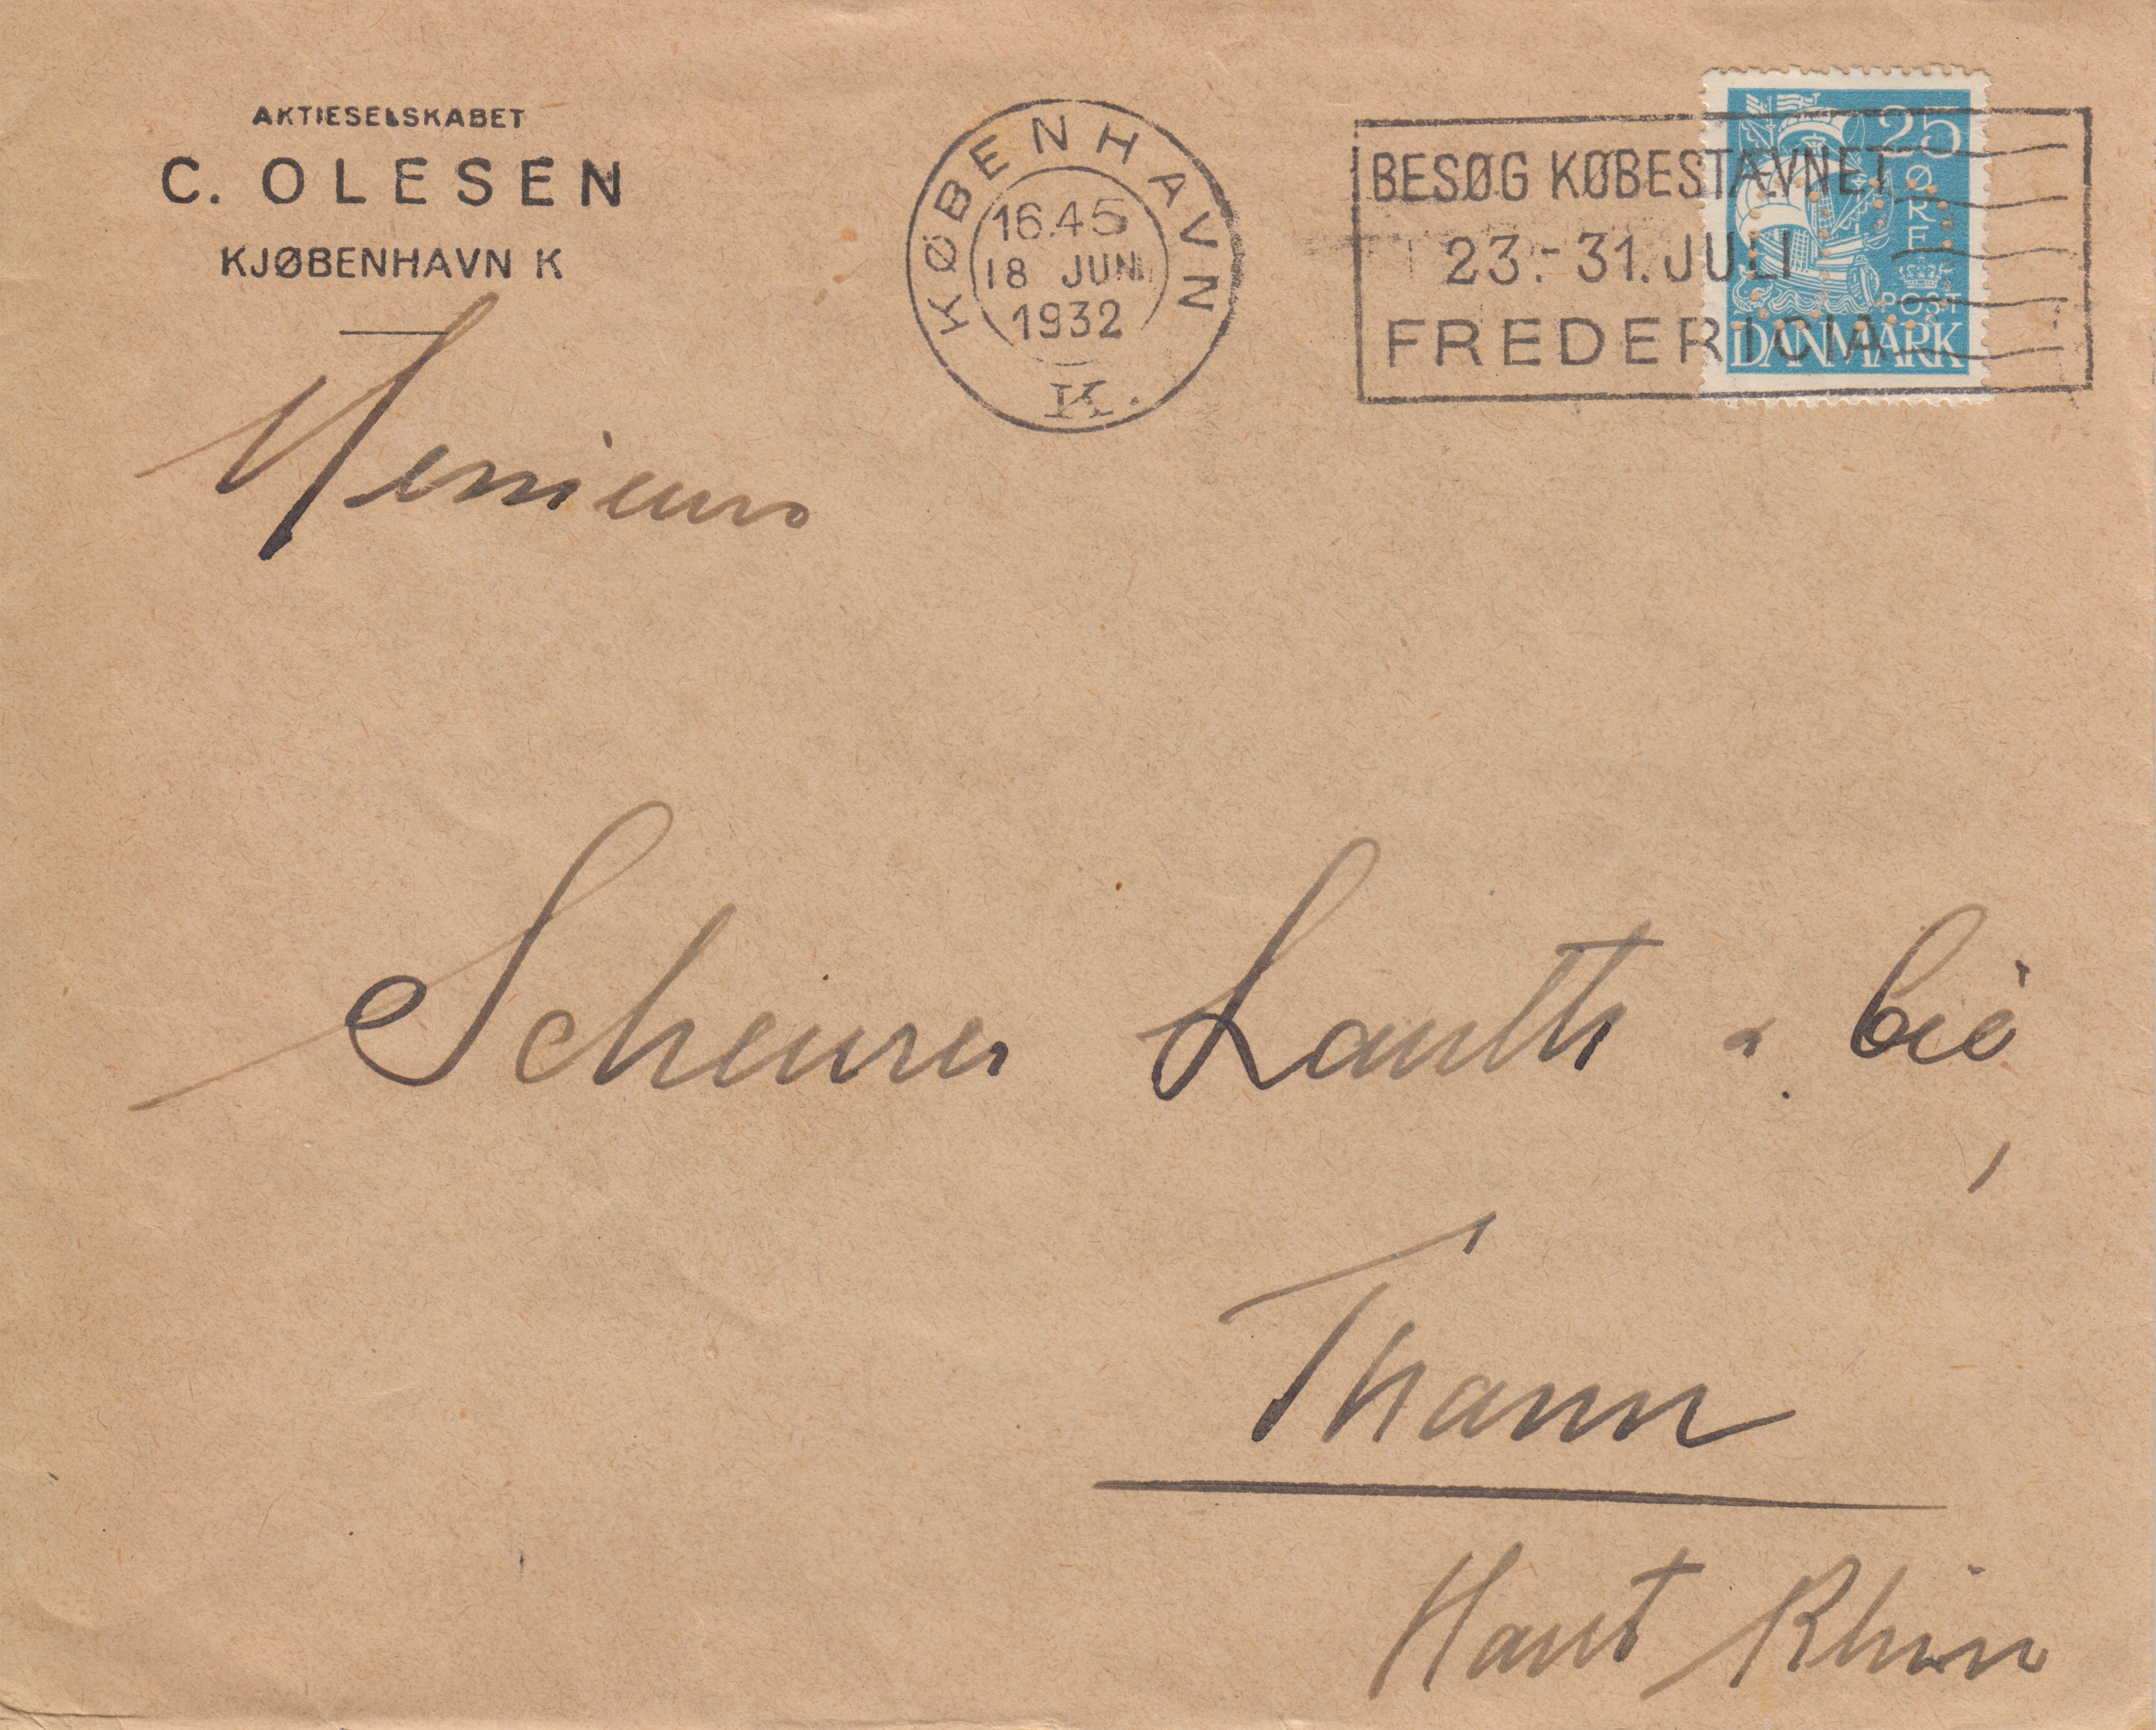 AKTIESELSKABET
C. OLESEN
KJØBENHAVN K
KØBENHAVN
16.45
18 JUNI
1932
K.
BESØG KØBESTÆVNET
23.-31. JULI
FREDERICIA
25
ØRE
POST
DANMARK
Messieurs
Scheurer Lauth & Cie,
Thann
Haut Rhin